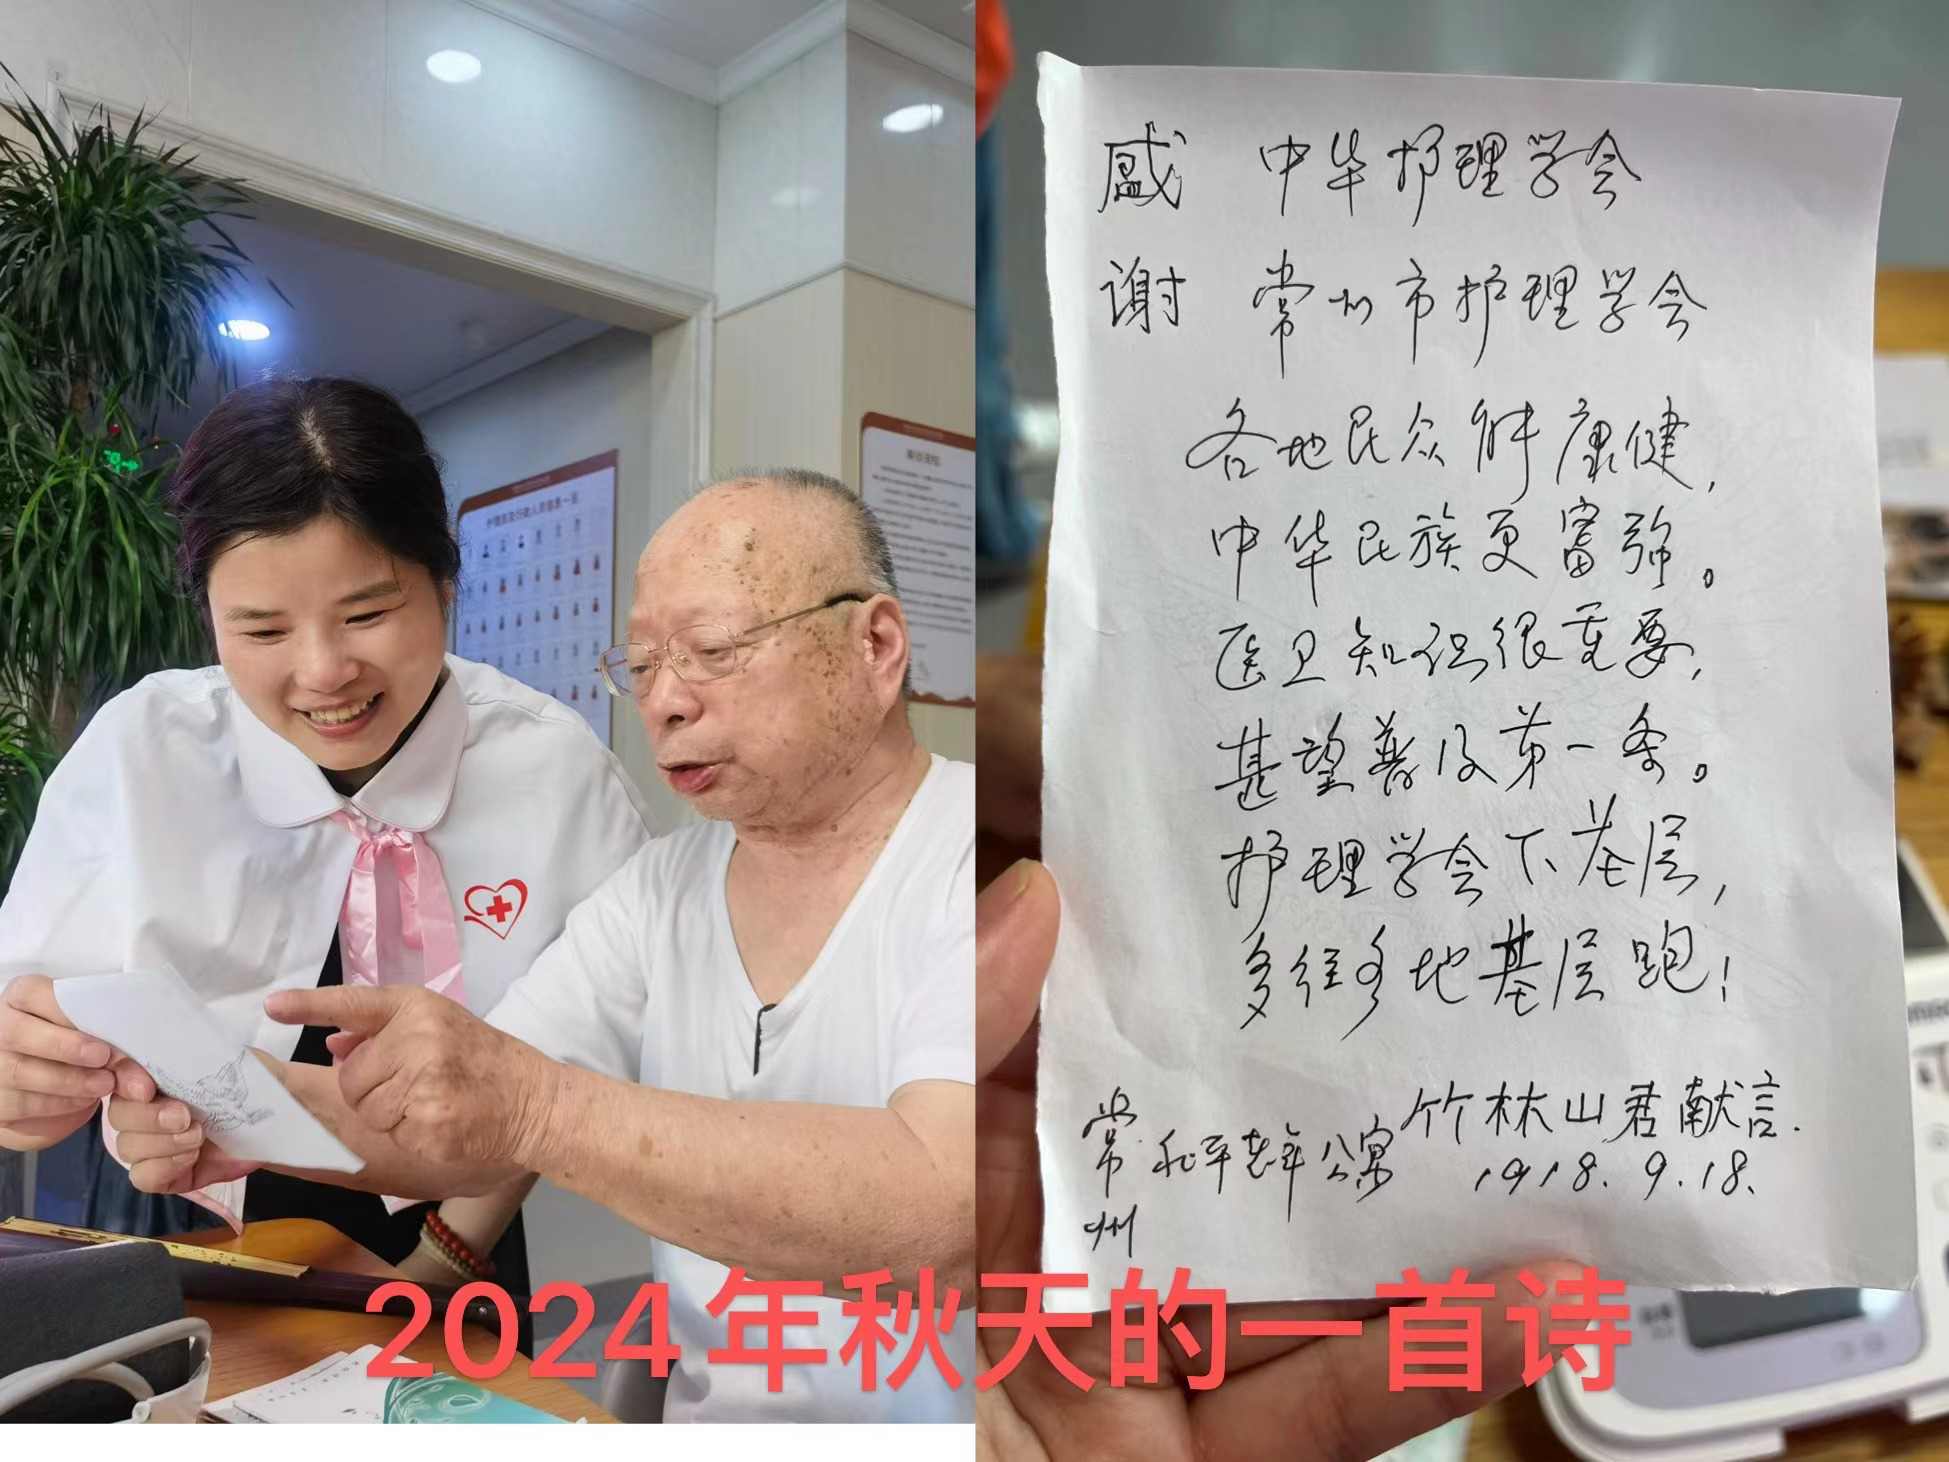 护理部及行政人员信息一览
感 中华护理学会
谢 常州市护理学会
各地民众能康健，
中华民族更富强。
医卫知识很重要，
甚望普及第一条。
护理学会下基层，
多往各地基层跑！
竹林山君献言.
常州 和平老年公寓
1918.9.18.
2024年秋天的一首诗